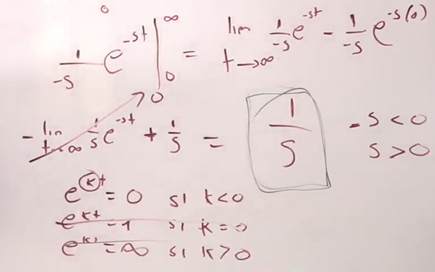 0
1/-s e^-st |_0^∞ = lim t→∞ 1/-s e^-st - 1/-s e^-s(0)
- lim t→∞ 1/s e^-st + 1/s = 1/s - s < 0
0 s > 0
e^kt = 0 si k < 0
e^kt = 1 si k = 0
e^kt = ∞ si k > 0